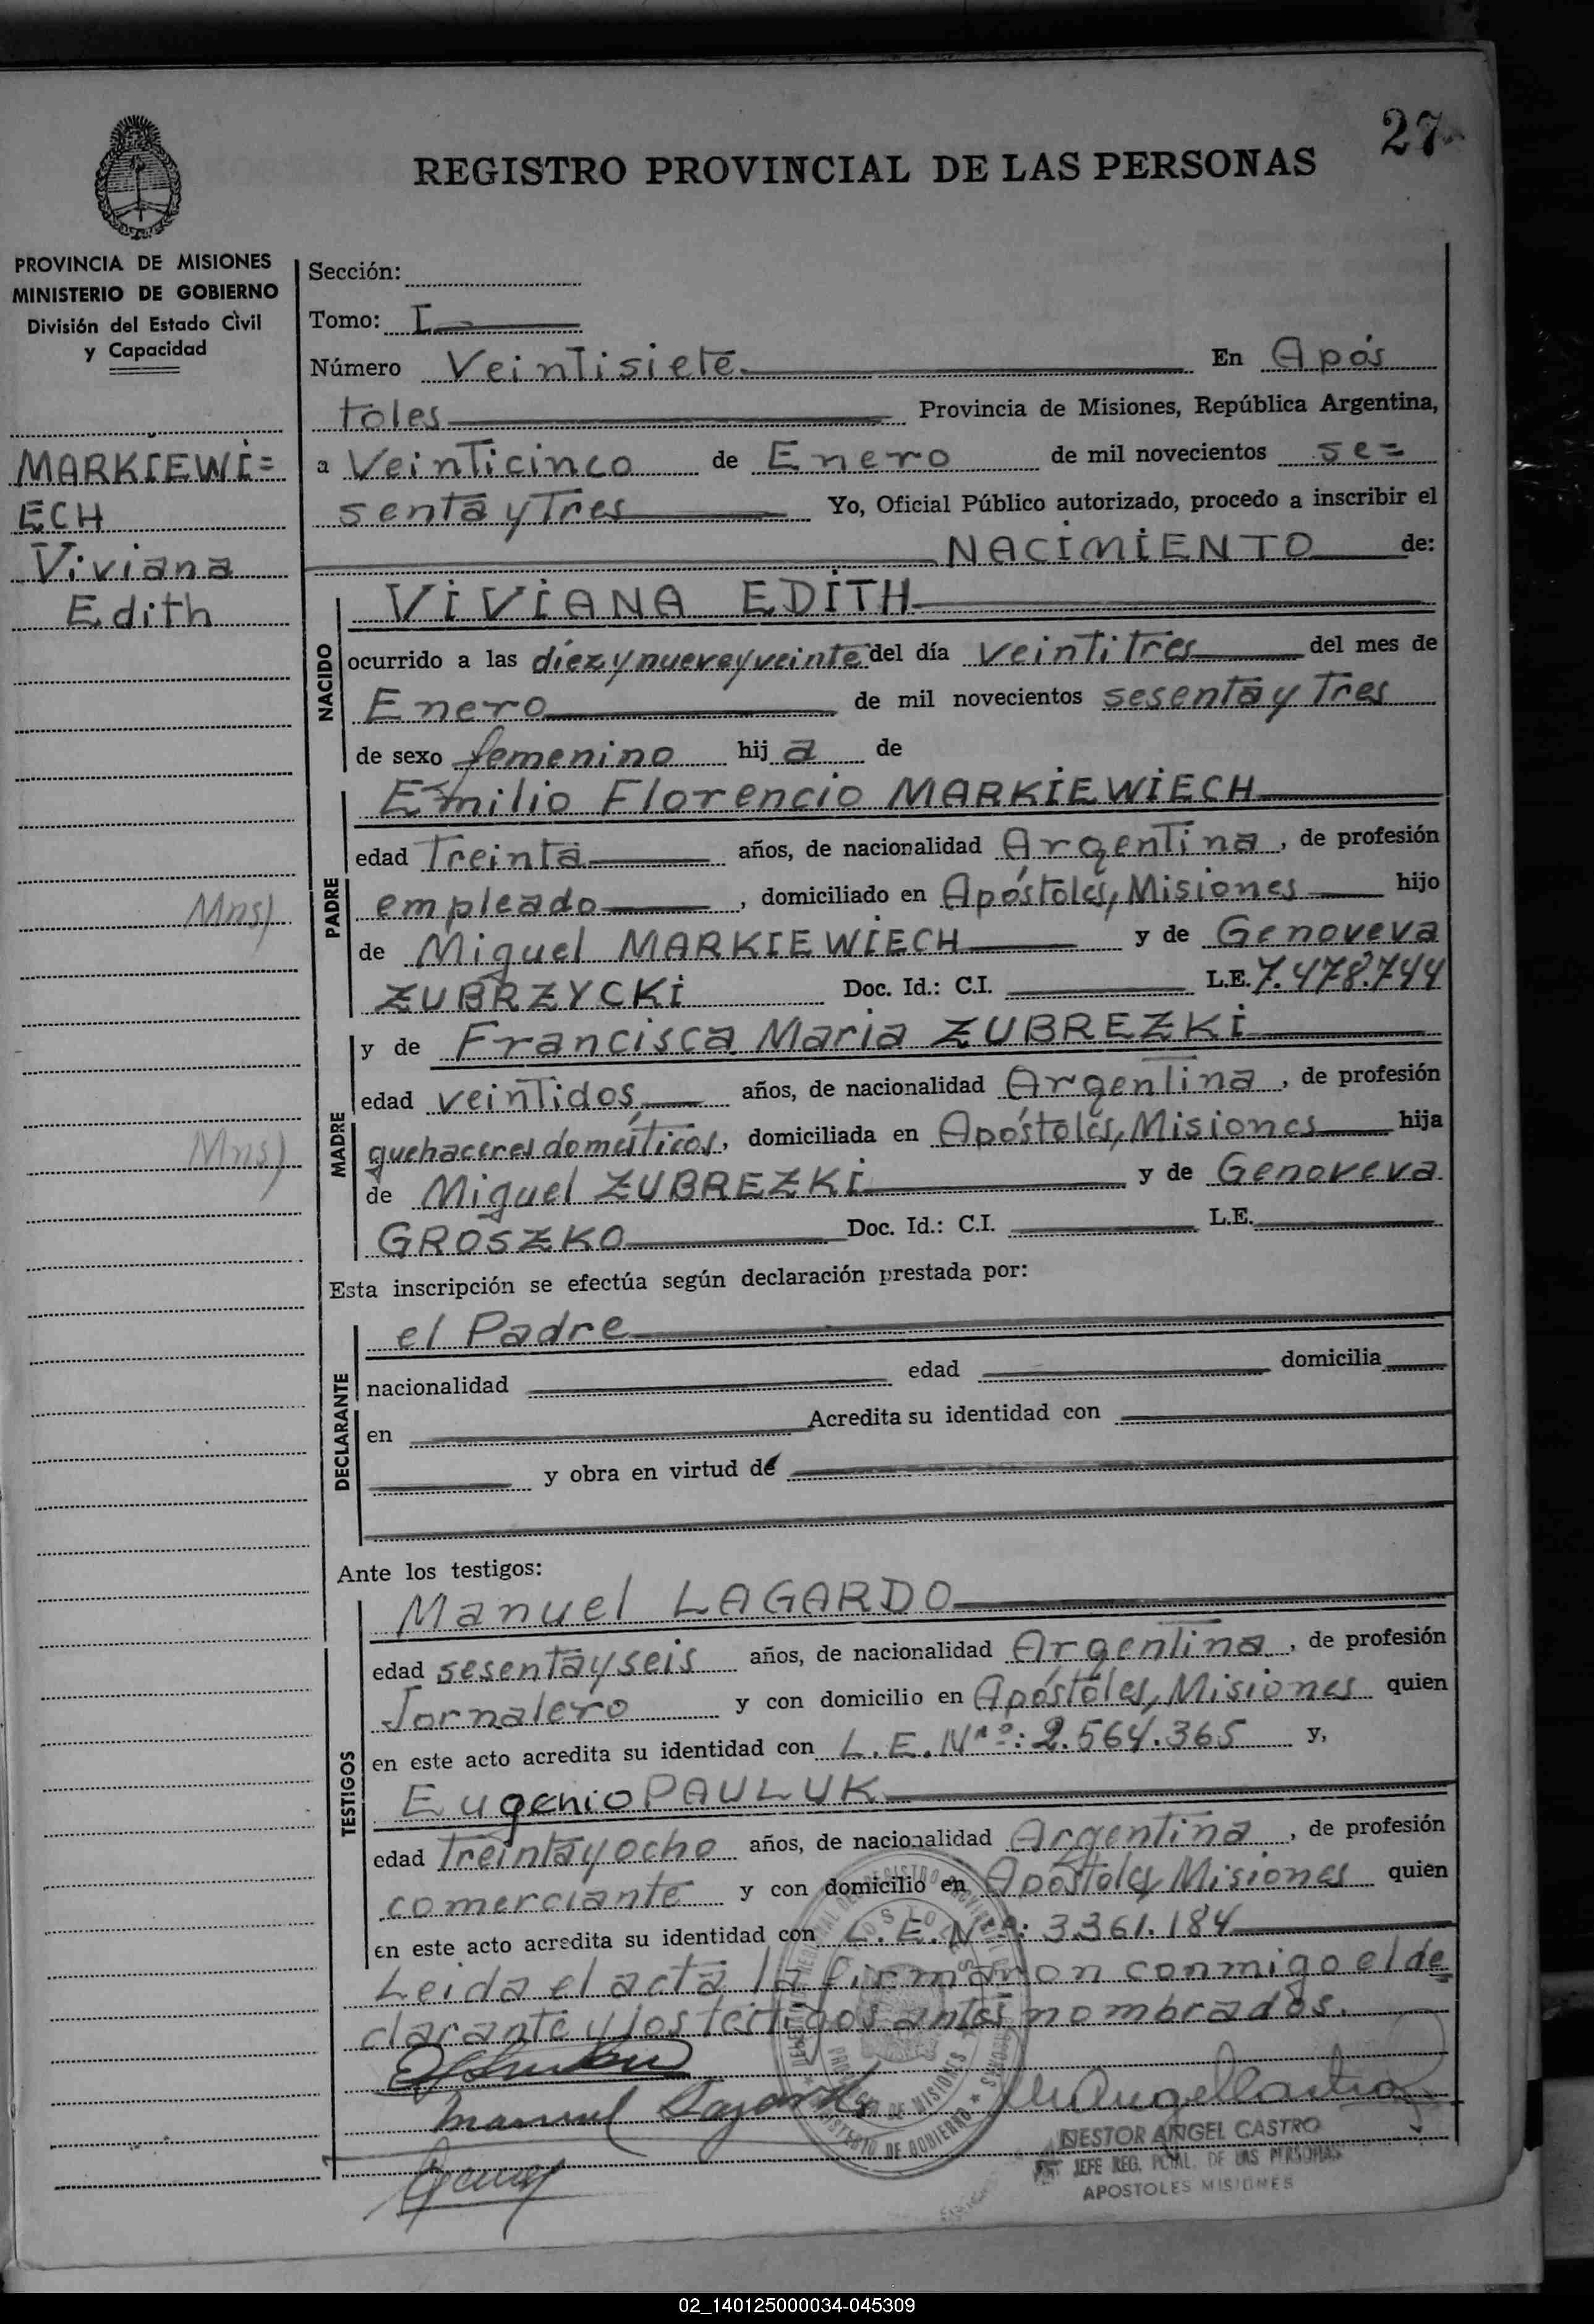 27
REGISTRO PROVINCIAL DE LAS PERSONAS
PROVINCIA DE MISIONES
MINISTERIO DE GOBIERNO
División del Estado Civil
y Capacidad
MARKIEWI=
ECH
Viviana
Edith
Mns)
Mns)
Sección:
Tomo: I
Número Veintisiete En Após
toles Provincia de Misiones, República Argentina,
a Veinticinco de Enero de mil novecientos se=
senta y Tres Yo, Oficial Público autorizado, procedo a inscribir el
NACIMIENTO de:
NACIDO
VIVIANA EDITH
ocurrido a las diez y nueve y veinte del día veintitres del mes de
Enero de mil novecientos sesenta y Tres
de sexo femenino hij a de
PADRE
Emilio Florencio MARKIEWIECH
edad Treinta años, de nacionalidad Argentina, de profesión
empleado, domiciliado en Apóstoles, Misiones hijo
de Miguel MARKIEWIECH y de Genoveva
ZUBRZYCKI Doc. Id.: C.I. L.E. 7.478.744
MADRE
y de Francisca Maria ZUBREZKI
edad veintidos años, de nacionalidad Argentina, de profesión
quehaceres domésticos, domiciliada en Apóstoles, Misiones hija
de Miguel ZUBREZKI y de Genoveva
GROSZKO Doc. Id.: C.I. L.E.
Esta inscripción se efectúa según declaración prestada por:
DECLARANTE
el Padre
nacionalidad edad domicilia
en Acredita su identidad con
y obra en virtud de
Ante los testigos:
TESTIGOS
Manuel LAGARDO
edad sesenta y seis años, de nacionalidad Argentina, de profesión
Jornalero y con domicilio en Apóstoles, Misiones quien
en este acto acredita su identidad con L.E. Nº: 2.564.365 y,
Eugenio PAULUK
edad Treinta y ocho años, de nacionalidad Argentina, de profesión
comerciante y con domicilio en Apóstoles, Misiones quien
en este acto acredita su identidad con L.E. Nº: 3361.184
Leida el acta la firmaron conmigo el de
clarante y los testigos antes nombrados.
Manuel Lagardo
NESTOR ANGEL CASTRO
JEFE REG. PCIAL. DE LAS PERSONAS
APOSTOLES MISIONES
02_140125000034-045309